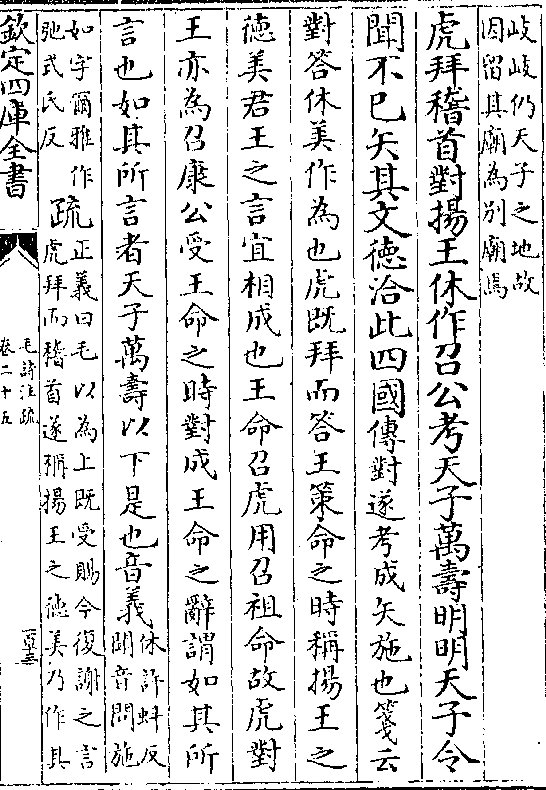 岐岐仍天子之地故
因留其廟為別廟焉
虎拜稽首對揚王休作召公考天子萬壽明明天子令
聞不已矢其文德洽此四國傳對遂考成矢施也箋云
對答休美作為也虎既拜而答王策命之時稱揚王之
德美君王之言宜相成也王命召虎用召祖命故虎對
王亦為召康公受王命之時對成王命之辭謂如其所
言也如其所言者天子萬壽以下是也音義休許虯反
聞音問施
如字爾雅作
弛式氏反
疏正義曰毛以為上既受賜今復謝之言
虎拜而稽首遂稱揚王之德美乃作其
欽定四庫全書
毛詩注疏
卷二十五